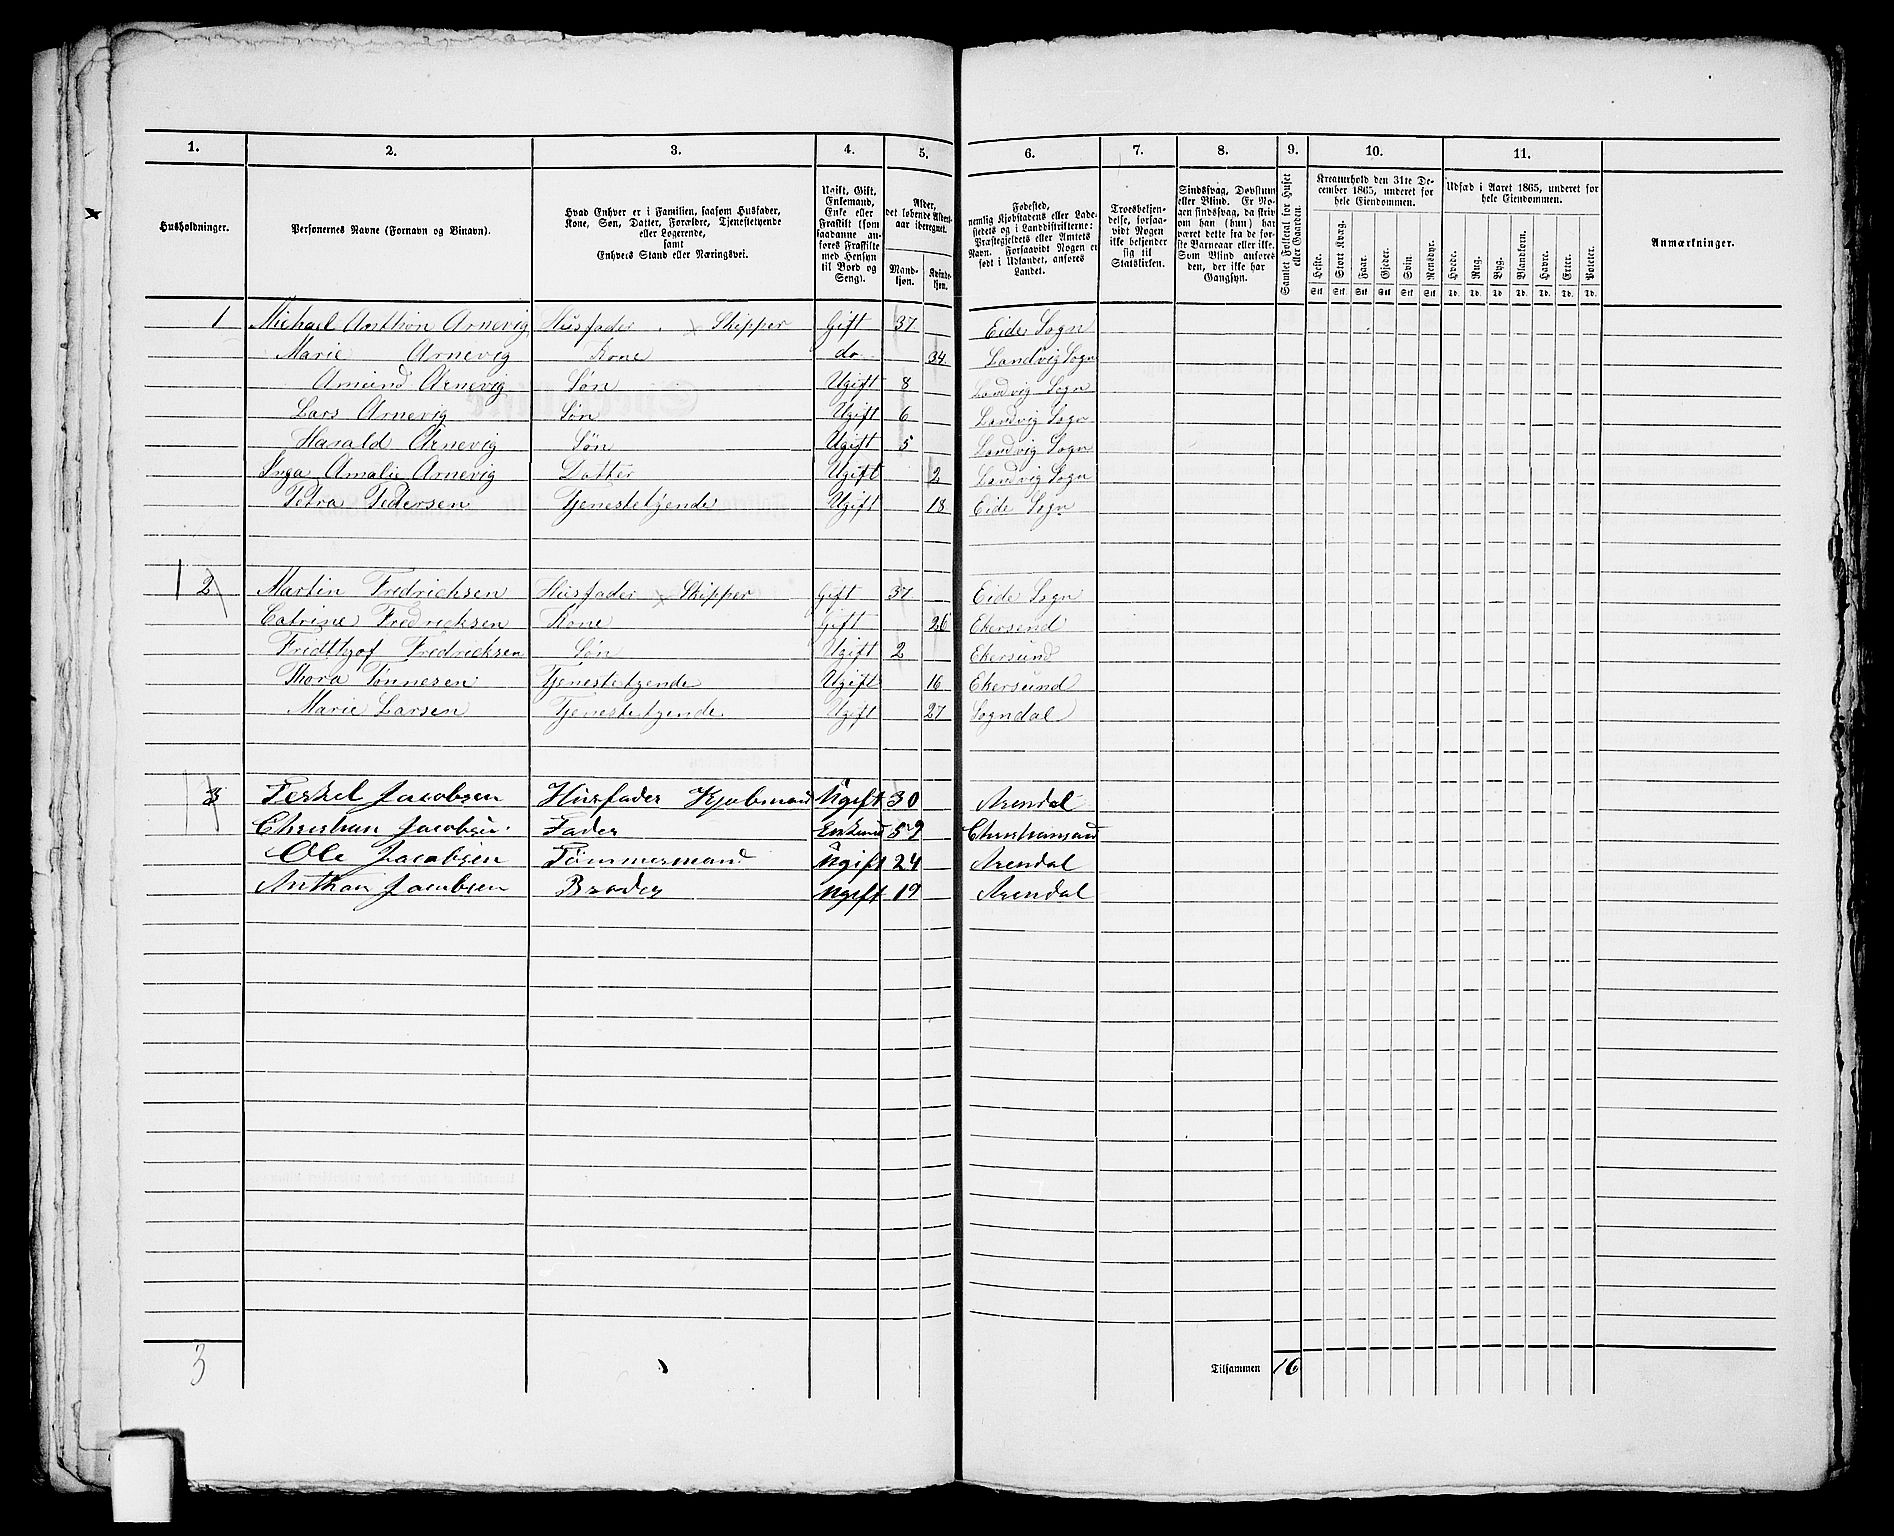 1. 2. 3. 4. 5. 6. 7. 8. 9. 10. 11.
Husholdninger.
Personernes Navne (Fornavn og Binavn).
Hvad Enhver er i Familien, saasom Husfader,
Kone, Søn, Datter, Forældre, Tjenestetyende
eller Logerende,
samt
Enhvers Stand eller Næringsvei.
Ugift, Gift,
Enkemand,
Enke eller
Fraskilt (som
saadanne an-
føres Fraskilte
med Hensyn
til Bord og
Seng).
Alder,
det løbende Alders-
aar iberegnet.
Mand-
kjøn.
Kvinde-
kjøn.
Fødested,
nemlig Kjøbstadens eller Lade-
stedets og i Landdistrikterne:
Præstegjeldets eller Amtets
Navn. Forsaavidt Nogen er
født i Udlandet, anføres
Landet.
Troesbekjen-
delse, forsaa-
vidt Nogen
ikke bekjender
sig til
Statskirken.
Sindssvag, Døvstum
eller Blind. Er No-
gen sindssvag, da skriv
om han (hun) har
været dette fra de før-
ste Barneaar eller ikke.
Som Blind anføres
den, der ikke har
Gangsyn.
Samlet Folketal for Huset
eller Gaarden.
Kreaturhold den 31te De-
cember 1865, underet for
hele Eiendommen.
Heste. Stort Kvæg. Faar. Gjeder. Svin. Rensdyr.
Stk. Stk. Stk. Stk. Stk. Stk.
Udsæd i Aaret 1865, underet for
hele Eiendommen.
Hvede. Rug. Byg. Blandkorn. Havre. Erter. Poteter.
Td. Td. Td. Td. Td. Td. Td.
Anmærkninger.
1 Michael Anthon Arnevig Husfader x Skipper Gift 37 Eide Sogn
Marie Arnevig Kone do 34. Landvig Sogn
Amund Arnevig Søn Ugift 8 Landvig Sogn
Lars Arnevig Søn Ugift 6 Landvig Sogn
Harald Arnevig Søn Ugift 5 Landvig Sogn
Inga Amalie Arnevig Datter Ugift 2 Landvig Sogn
Petra Pedersen Tjenestetyende Ugift 18 Eide Sogn
2 Martin Fredricksen Husfader x Skipper Gift 37 Eide Sogn
Catrine Fredricksen Kone Gift 26 Ekersund
Fredthjof Fredricksen Søn Ugift 2 Ekersund
Thora Tønnesen Tjenestetyende Ugift 16 Ekersund
Marie Larsen Tjenestetyende Ugift 27 Sogndal
3 Terkel Jacobsen Husfader Kjøbmand Ugift 30 Arendal
Christian Jacobsen Fader 59 Christiansand
Ole Jacobsen Tømmermand Ugift 24 Arendal
Anthon Jacobsen Broder Ugift 19 Arendal
3 Tilsammen 16